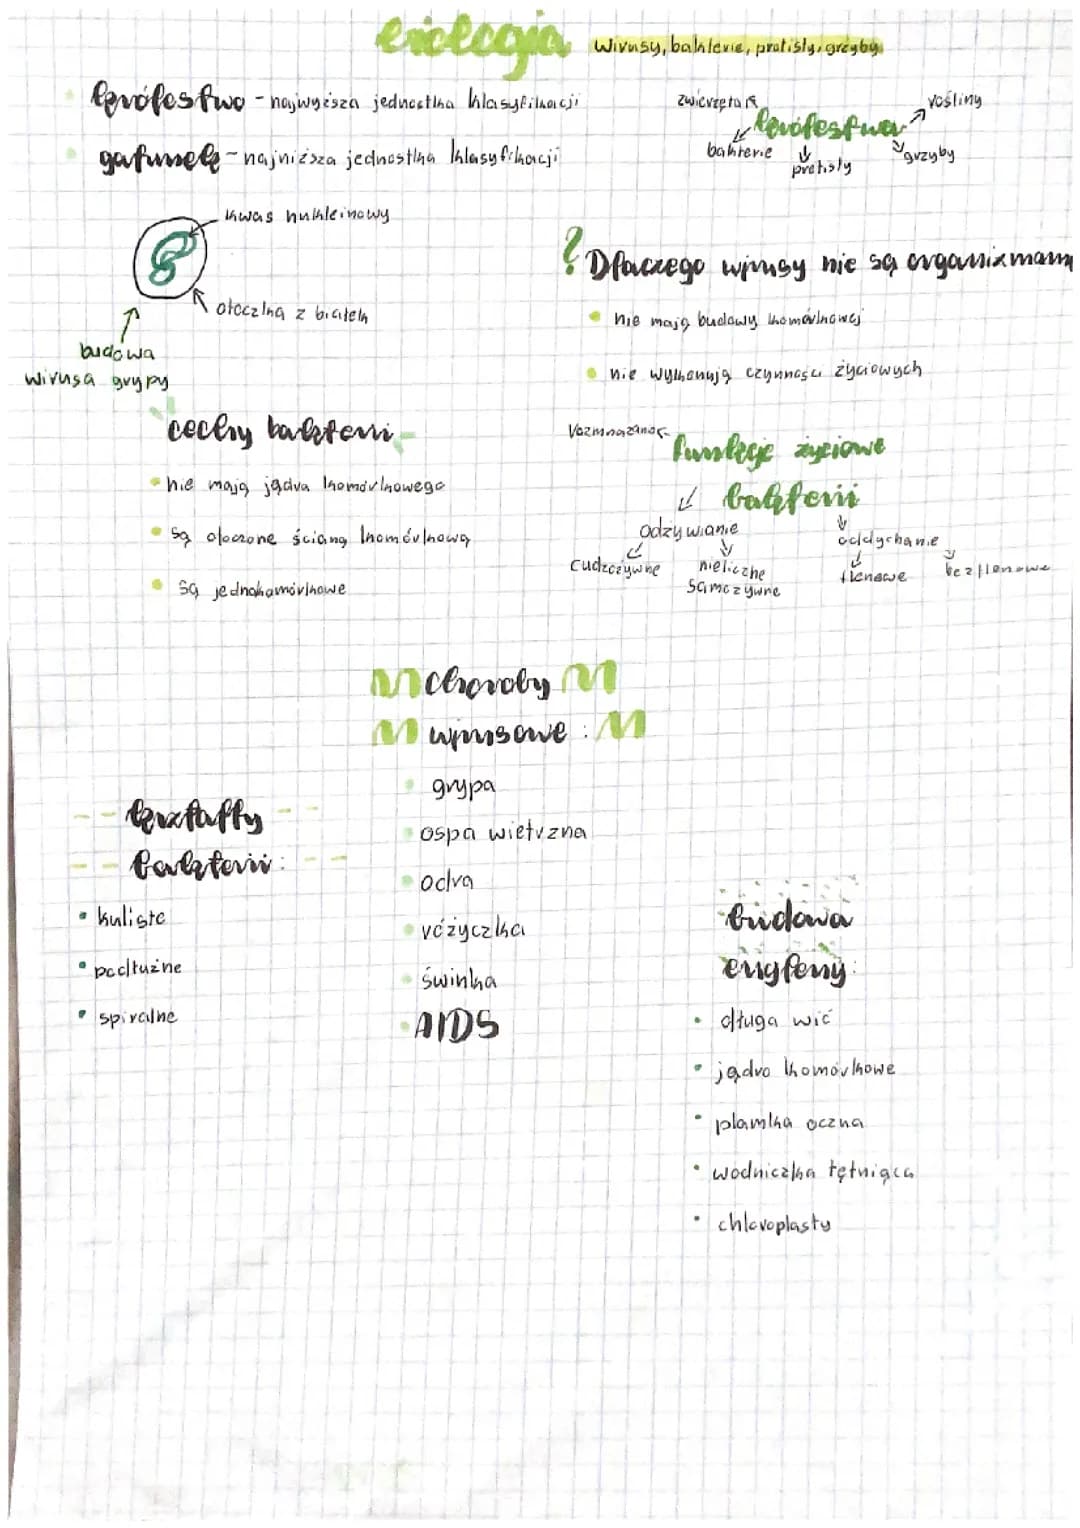 biologia
wirusy, bakterie, protisty, grzyby
królestwo - najwyższa jednostka klasyfikacji
gatunek - najniższa jednostka klasyfikacji
zwierzęta
rośliny
królestwa
bakterie
protisty
grzyby
kwas nukleinowy
otoczka z białek
budowa
wirusa grypy
? Dlaczego wirusy nie są organizmami
nie mają budowy komórkowej
nie wykonują czynności życiowych
cechy bakterii
nie mają jądra komórkowego
są otoczone ścianą komórkową
są jednokomórkowe
rozmnażanie
funkcje życiowe
bakterii
odżywianie
oddychanie
cudzożywne
nieliczne
samożywne
tlenowe
beztlenowe
choroby
wirusowe :
grypa
ospa wietrzna
odra
różyczka
świnka
AIDS
kształty
bakterii:
kuliste
podłużne
spiralne
budowa
eugleny:
długa wić
jądro komórkowe
plamka oczna
wodniczka tętniąca
chloroplasty